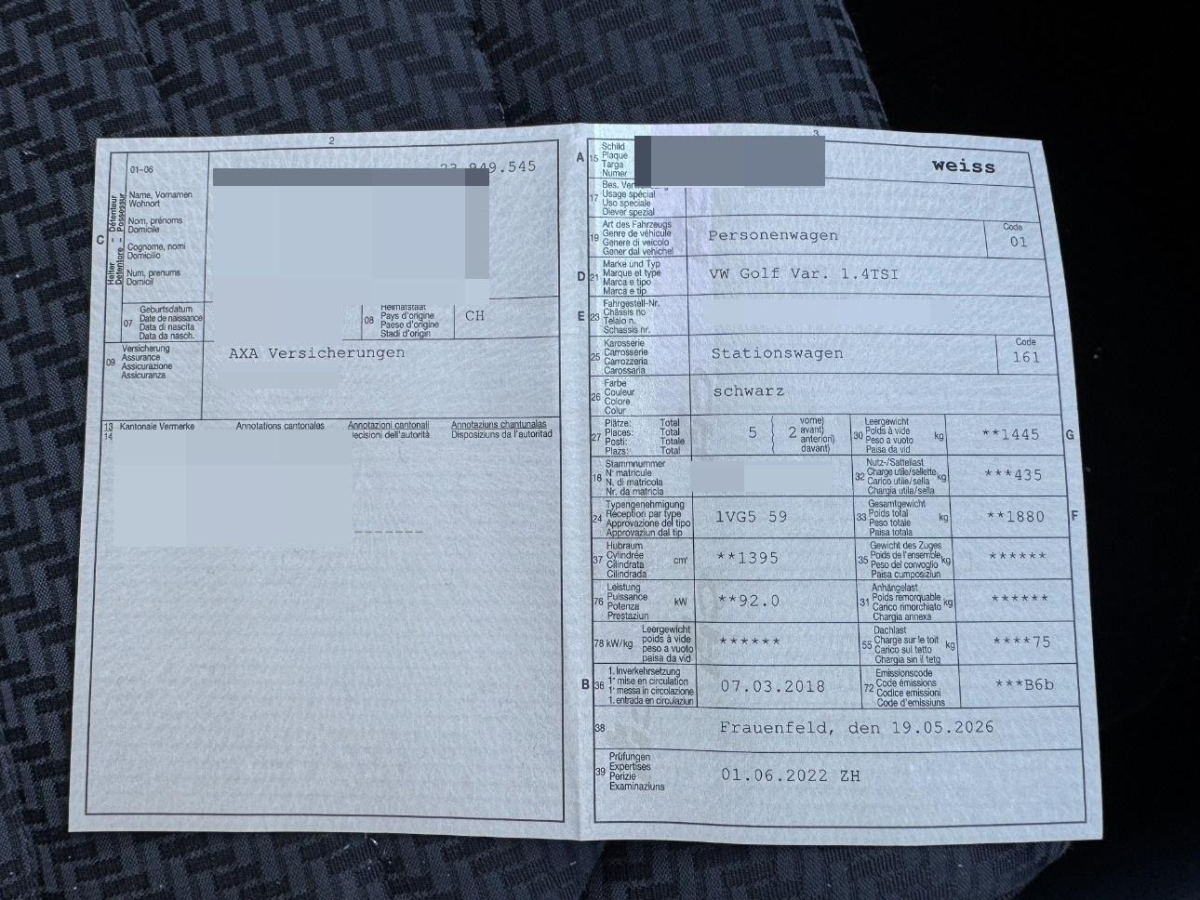 2
01-06
949.545
C
Halter - Détenteur
Detentore - Possessur
Name, Vornamen
Wohnort
Nom, prénoms
Domicile
Cognome, nomi
Domicilio
Num, prenums
Domicil
07
Geburtsdatum
Date de naissance
Data di nascita
Data da nasch.
08
Heimatstaat
Pays d'origine
Paese d'origine
Stadi d'origin
CH
09
Versicherung
Assurance
Assicurazione
Assicuranza
AXA Versicherungen
13
14
Kantonale Vermerke
Annotations cantonales
Annotazioni cantonali
Annotaziuns chantunalas
decisioni dell'autorità
Disposiziuns da l'autoritad
3
A
15
Schild
Plaque
Targa
Numer
weiss
17
Bes.
Usage spécial
Uso speciale
Diever spezial
19
Art des Fahrzeugs
Genre de véhicule
Genere di veicolo
Gener dal vehichel
Personenwagen
Code
01
D
21
Marke und Typ
Marque et type
Marca e tipo
Marca e tip
VW Golf Var. 1.4TSI
E
23
Fahrgestell-Nr.
Châssis no
Telaio n.
Schassis nr.
25
Karosserie
Carrosserie
Carrozzeria
Carossaria
Stationswagen
Code
161
26
Farbe
Couleur
Colore
Colur
schwarz
27
Plätze: Total
Places: Total
Posti: Totale
Plazs: Total
5
2
vorne)
avant)
anteriori)
davant)
30
Leergewicht
Poids à vide
Peso a vuoto
Paisa da vid
kg
**1445
G
18
Stammnummer
N° matricule
N. di matricola
Nr. da matricla
32
Nutz-/Sattellast
Charge utile/sellette
Carico utile/sella
Chargia utila/sella
kg
***435
24
Typengenehmigung
Réception par type
Approvazione del tipo
Approvaziun dal tip
1VG5 59
33
Gesamtgewicht
Poids total
Peso totale
Paisa totala
kg
**1880
F
37
Hubraum
Cylindrée
Cilindrata
Cilindrada
cm³
**1395
35
Gewicht des Zuges
Poids de l'ensemble
Peso del convoglio
Paisa cumposiziun
kg
******
76
Leistung
Puissance
Potenza
Prestaziun
kW
**92.0
31
Anhängelast
Poids remorquable
Carico rimorchiato
Chargia annexa
kg
******
78 kW/kg
Leergewicht
poids à vide
peso a vuoto
paisa da vid
******
55
Dachlast
Charge sur le toit
Carico sul tetto
Chargia sin il tetg
kg
****75
B
36
1. Inverkehrsetzung
1re mise en circulation
1a messa in circolazione
1. entrada en circulaziun
07.03.2018
72
Emissionscode
Code émissions
Codice emissioni
Code d'emissiuns
***B6b
38
Frauenfeld, den 19.05.2026
39
Prüfungen
Expertises
Perizie
Examinaziuns
01.06.2022 ZH